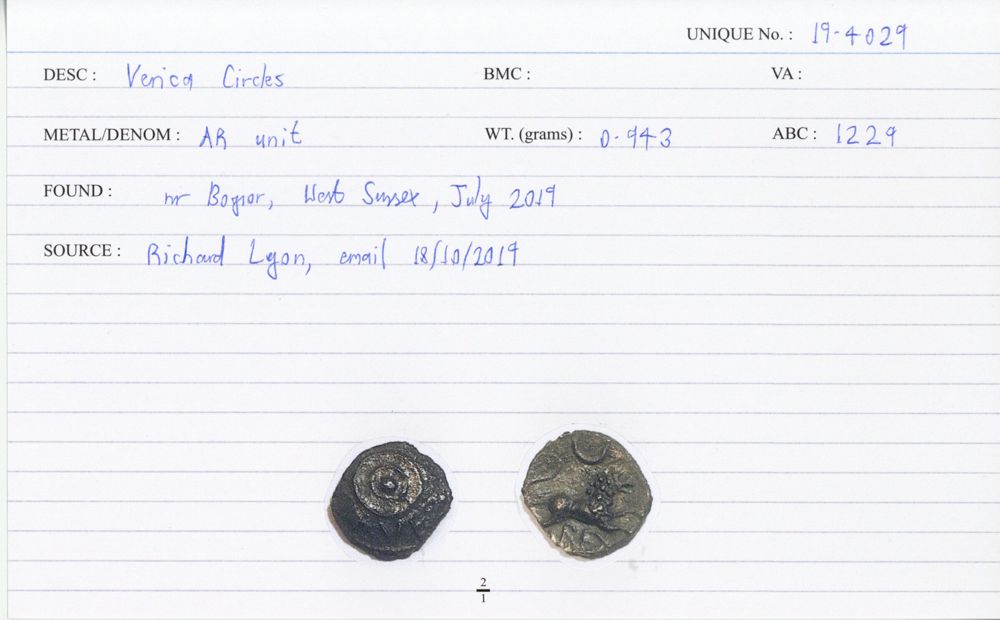 UNIQUE No. : 19-4029
DESC : Verica Circles BMC : VA :
METAL/DENOM : AR unit WT. (grams) : 0.943 ABC : 1229
FOUND : nr Bognor, West Sussex, July 2019
SOURCE : Richard Lyon, email 18/10/2019
2
1